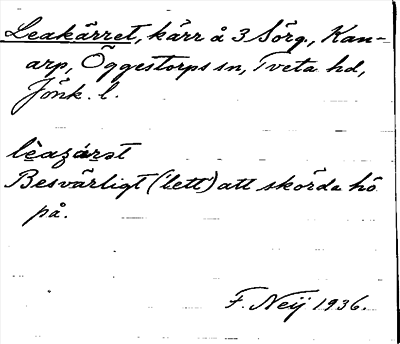 Leakärret, kärr å 3 Sörg., Kan-
arp, Öggestorps sn, Tveta hd,
Jönk. l.
lèaȥárət
Besvärligt ('lett') att skörda hö
på.
F. Neij 1936.